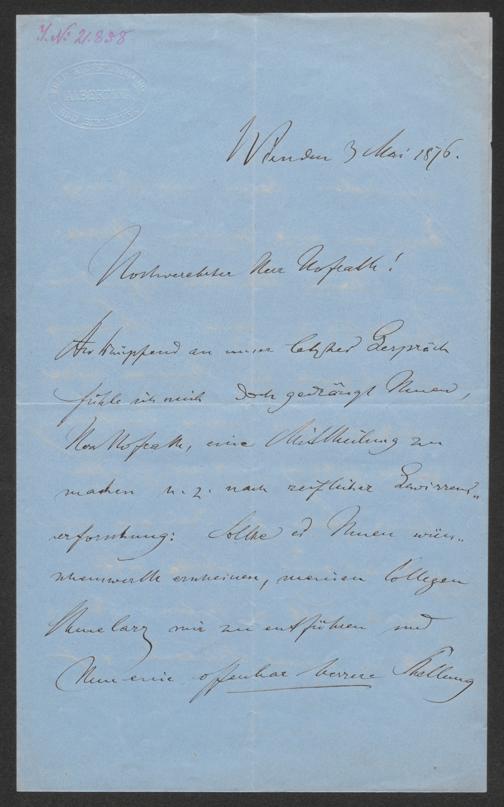 J.N. 21.838
Wien den 3 Mai 1876.
Hochverehrter Herr Hofrath!
Anknüpfend an unser letztes Gespräch
fühle ich mich doch gedrängt Ihnen,
Herr Hofrath, eine Mittheilung zu
machen u. z. nach reiflicher Gewissens„
erforschung: Sollte es Ihnen wün„
schenswerth erscheinen, meinen Collegen
mir zu entführen und
ihm eine offenbar bessere Stellung